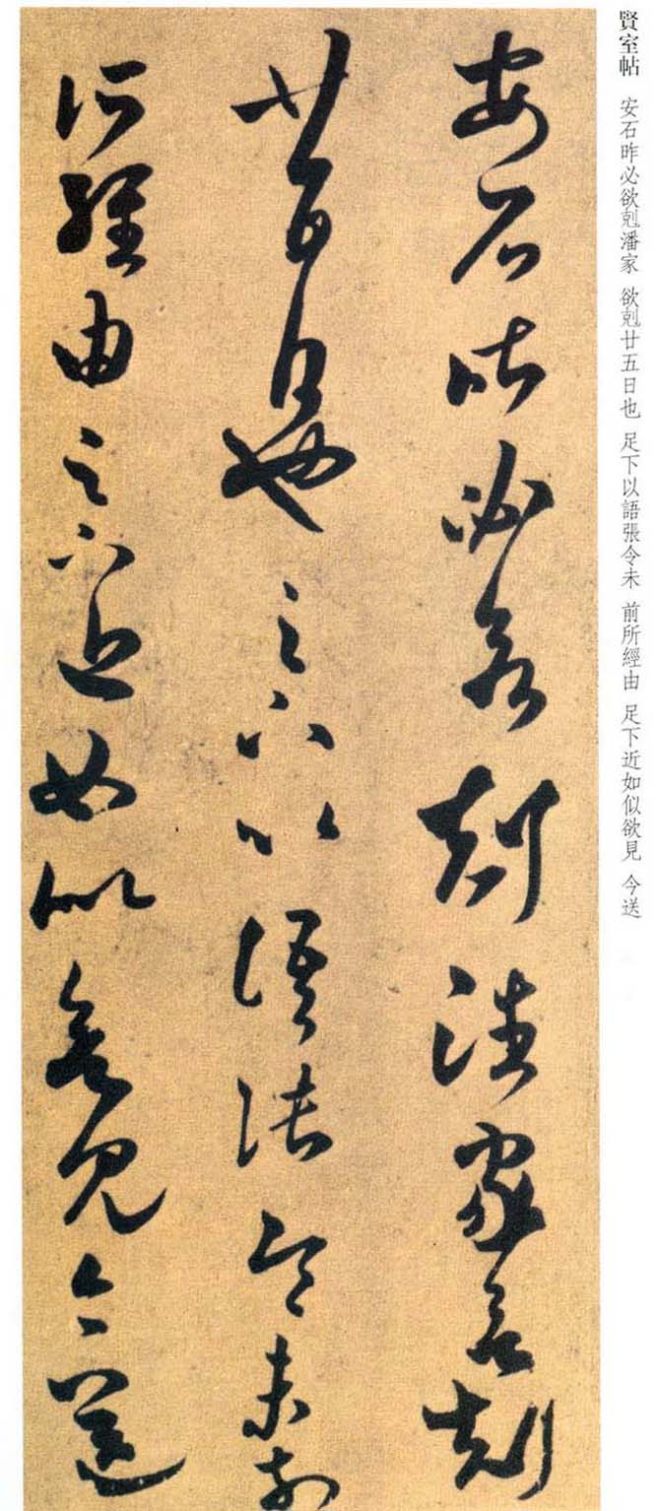 賢室帖 安石昨必欲剋潘家 欲剋廿五日也 足下以語張令未 前所經由 足下近如似欲見 今送
安石昨必欲剋潘家欲剋
廿五日也足下以語張令未前
所經由足下近如似欲見今送